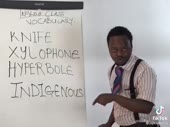 UPPER CLASS
VOCABULARY
KNIFE
XYLOPHONE
HYPERBOLE
INDIGENOUS
TikTok